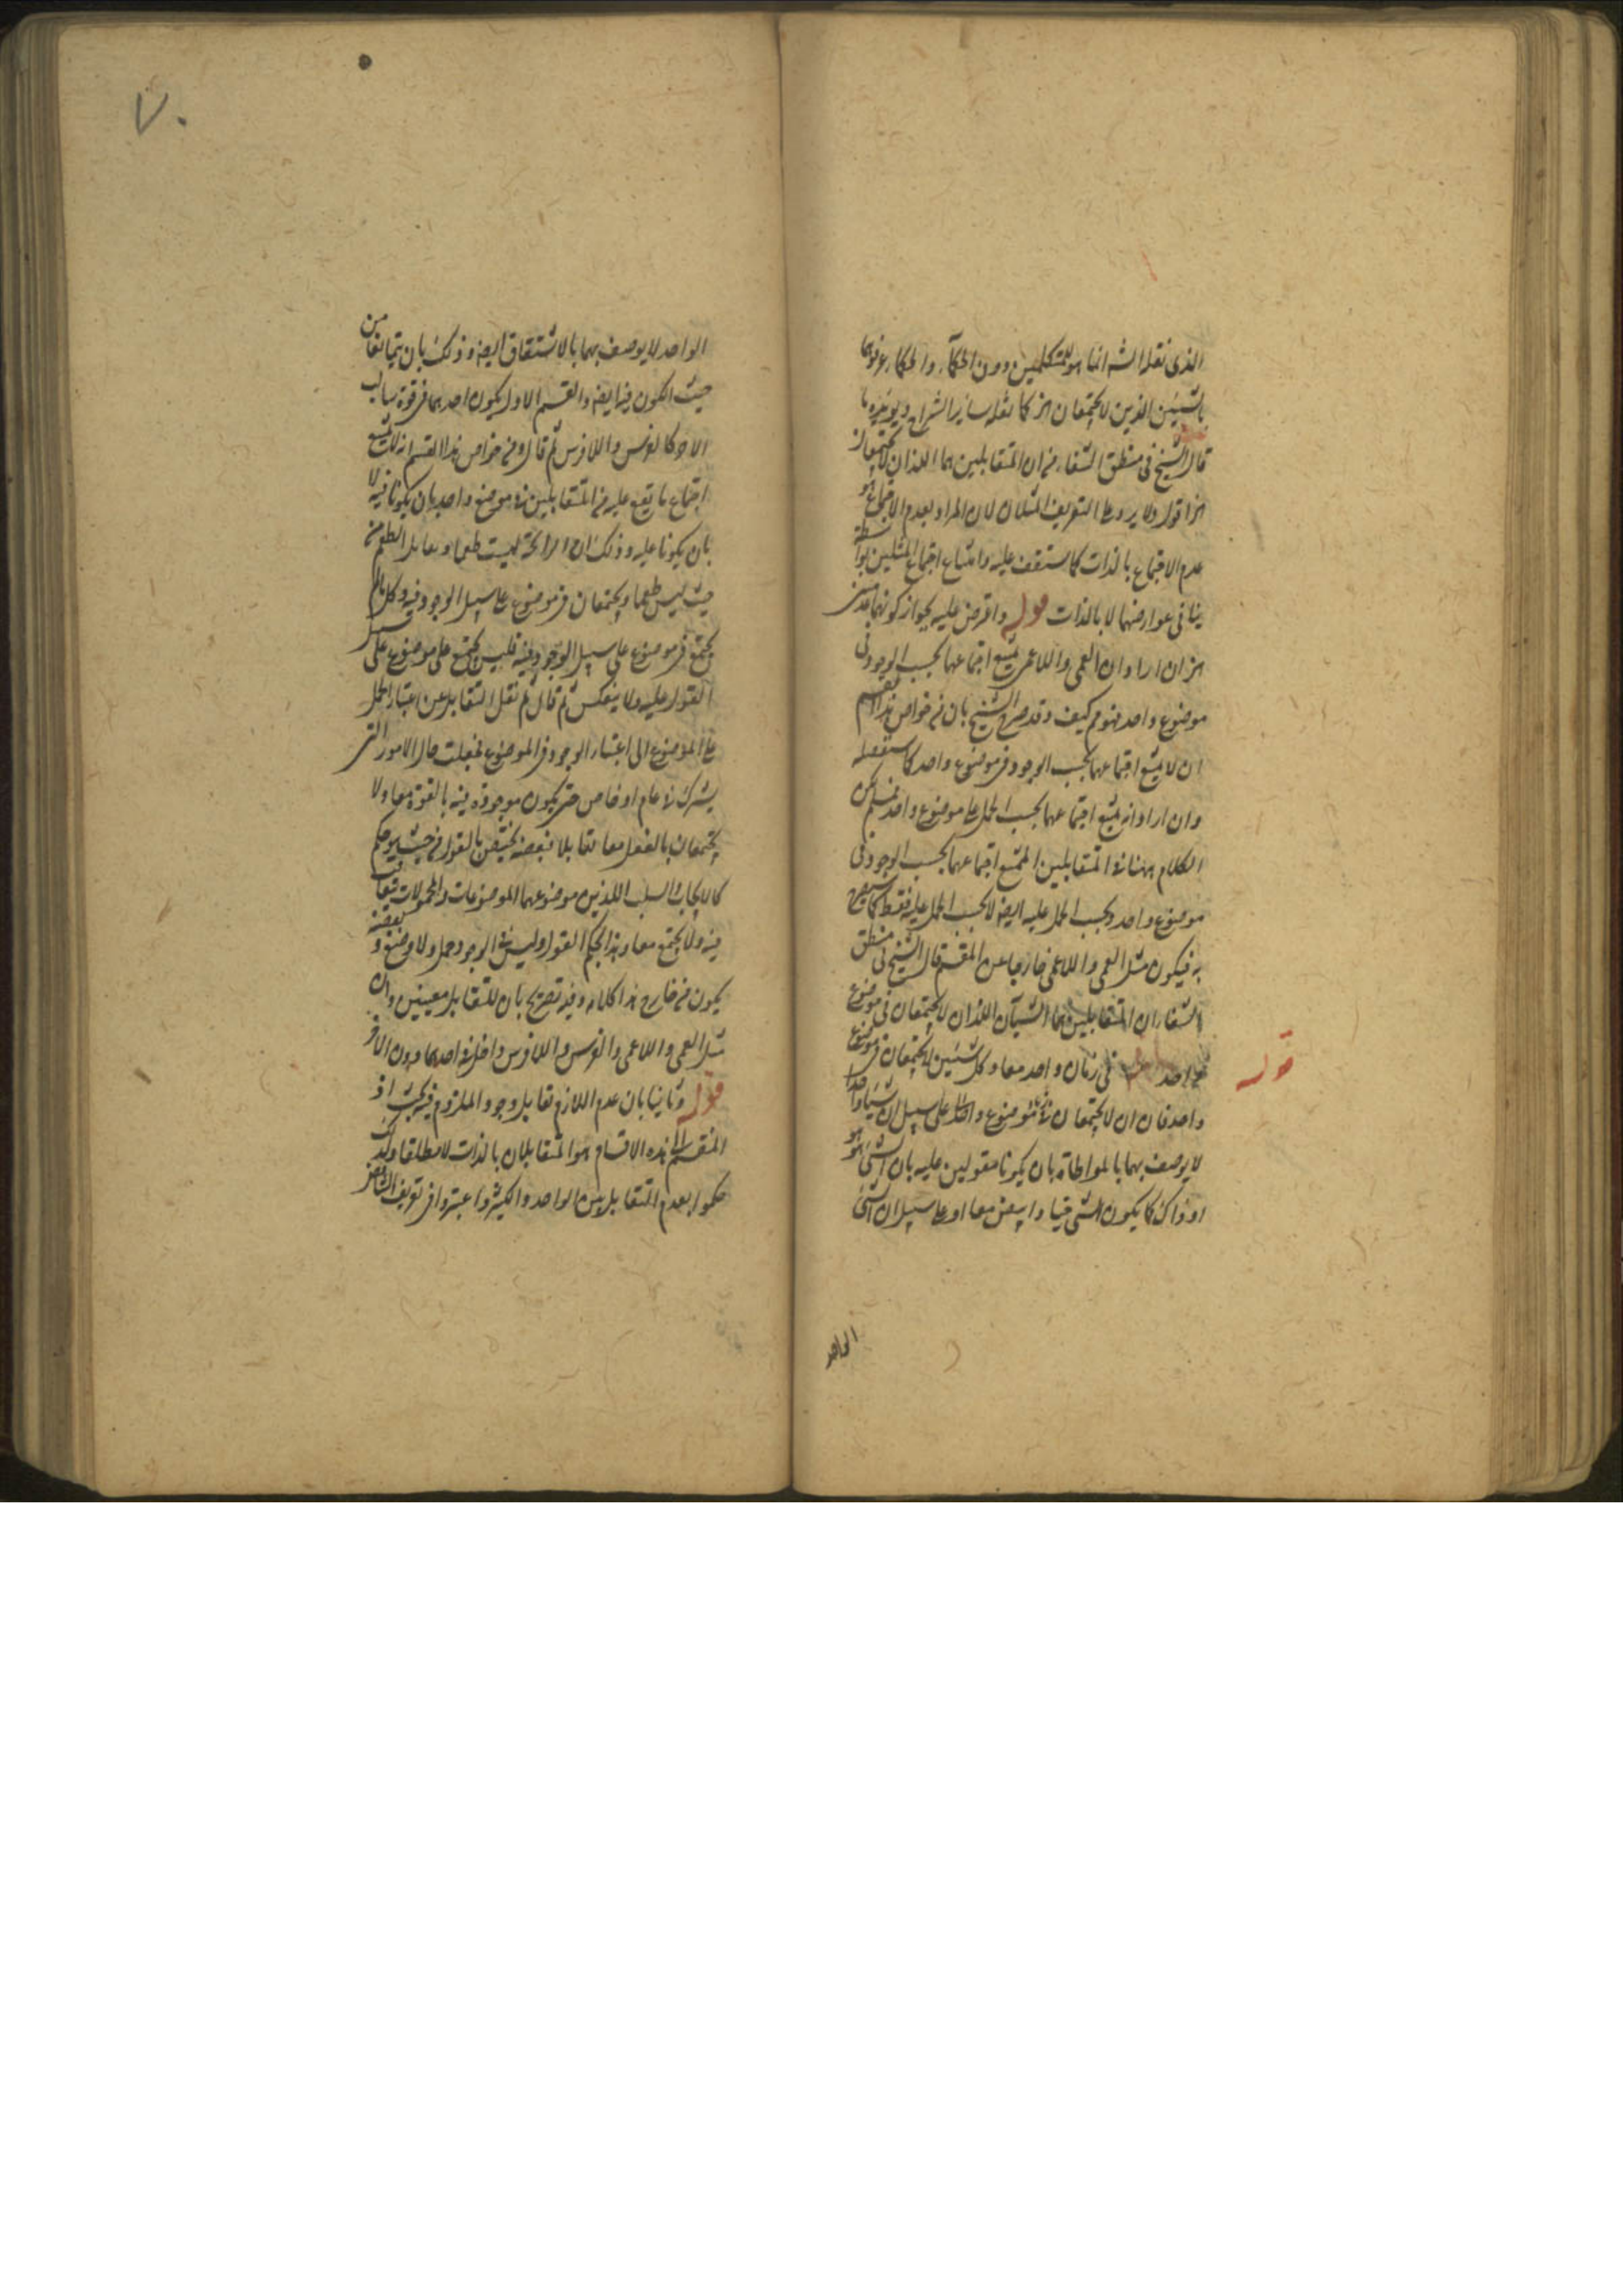 الذى نقله الشه انما هو للمتكلمين دون الحكماء والحكماء عرفوهما
بالشيئين الذين لا يجتمعان اه كما نقله سائر الشراح ويؤيده ما
قال الشيخ فى منطق الشفاء من ان المتقابلين هما اللذان لا يجتمعان
اه اقول ولا يرد على التعريف المثلان لان المراد بعدم الاجتماع هو
عدم الاجتماع بالذات كما ستقف عليه وامتناع اجتماع المثلين بواسطة
ينافى عوارضهما لا بالذات قوله واعترض عليه بجواز كونهما عدميين
اه ان اراد ان العمى واللاعمى يمتنع اجتماعهما بحسب الوجود فى
موضوع واحد فهو مم كيف وقد صرح الشيخ بان من خواص هذا القسم
ان لا يمتنع اجتماعهما بحسب الوجود فى موضوع واحد كما سنفصله
وان اراد انه يمتنع اجتماعهما بحسب الحمل على موضوع واحد فمسلم لكن
الكلام ههنا فى المتقابلين الممتنع اجتماعهما بحسب الوجود فى
موضوع واحد وبحسب الحمل عليه ايضا لا بحسب الحمل عليه فقط كما سيصرح
به فيكون مثل العمى واللاعمى خارجا عن المقسم قال الشيخ فى منطق
الشفاء ان المتقابلين هما الشيآن اللذان لا يجتمعان فى موضوع
واحد فى زمان واحد معا وكل شيئين لا يجتمعان فى موضوع
قوله
واحد فان ان لا يجتمعان فى موضوع واحد على سبيل ان شيئا واحدا
لا يوصف بهما بالمواطاة بان يكونا مقولين عليه بان الشئ هو هو
او ذاك كما يكون الشئ حيا وابيض معا او على سبيل ان الشئ
الواحد
٧٠
الواحد لا يوصف بهما بالاشتقاق ايضا وذلك بان يتمانعا من
حيث الكون فيه ايضا والقسم الاول يكون احدهما فى قوة سالب
الاخر كالفرس واللافرس ثم قال ومن خواص هذا القسم انه لا يمتنع
اجتماع ما يقع عليه من المتقابلين فى موضوع واحد بان يكونا فيه لا
بان يكونا عليه وذلك ان الرائحة ليست طعما ويقابل الطعم من
حيث ليس طعما ويجتمعان فى موضوع على سبيل الوجود فيه وكل ما لم
يجتمع فى موضوع على سبيل الوجود فيه فليس يجتمع على موضوع على سبيل
القول عليه ولا ينعكس ثم قال ثم نقل التقابل عن اعتبار الحمل
على الموضوع الى اعتبار الوجود فى الموضوع فجعلت حال الامور التى
يشترك فى عام او خاص حتى يكون موجودة فيه بالقوة معا ولا
يجتمعان بالفعل معا تقابلا فبعضه يختص بالقول من حيث هو حكم
كالايجاب والسلب اللذين موضوعهما الموضوعات والمحمولات يتعاقب
فيه ولا يجتمع معا وهذا بحكم القول وليس فى الوجود حمل ولا وضع وبعضه
يكون من خارج هذا كلامه وفيه تصريح بان للتقابل معنيين وان
مثل العمى واللاعمى والفرس واللافرس داخل فى احدهما دون الاخر
قوله وثانيا بان عدم اللازم تقابل وجود الملزوم فيه بحث اذ
المنقسم الى هذه الاقسام هو المتقابلان بالذات لا مطلقا ولذلك
حكموا بعدم التقابل بين الواحد والكثير واعتبروا فى تعريف